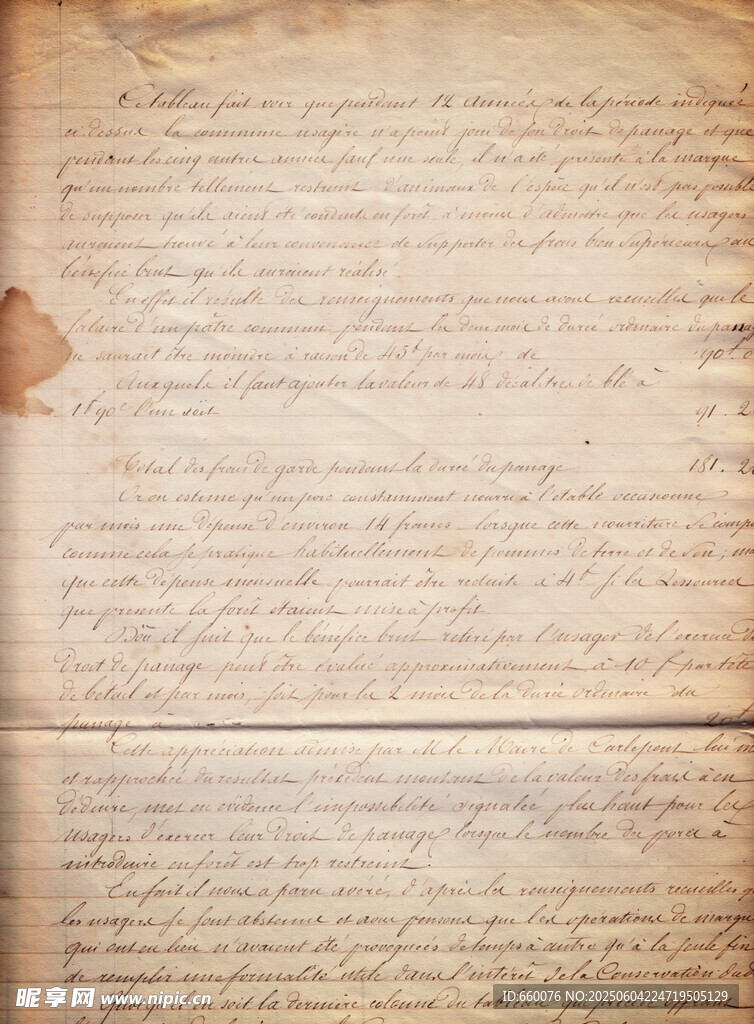 Ce tableau fait voir que pendant 12 années de la période indiquée
ci-dessus la commune usagère n'a point joui de son droit de panage et que
pendant les cinq autres années sauf une seule, il n'a été présenté à la marque
qu'un nombre tellement restreint d'animaux de l'espèce qu'il n'est pas possible
de supposer qu'ils aient été conduits en forêt, à moins d'admettre que les usagers
auraient trouvé à leur convenance de supporter des frais bien supérieurs au
bénéfice brut qu'ils auraient réalisé.
En effet il résulte des renseignements que nous avons recueillis que le
salaire d'un pâtre commun pendant les deux mois de durée ordinaire du panag
ne saurait être moindre à raison de 45f par mois, de 90f 0
Auxquels il faut ajouter la valeur de 48 décalitres de blé à
1f 90c l'un soit 91. 2
Total des frais de garde pendant la durée du panage 181. 2
Or on estime qu'un porc constamment nourri à l'étable occasionne
par mois une dépense d'environ 14 francs lorsque cette nourriture se comp
comme cela se pratique habituellement de pommes de terre et de son; ma
que cette dépense mensuelle pourrait être réduite à 4f si les ressources
que présente la forêt étaient mises à profit.
D'où il suit que le bénéfice brut retiré par l'usager de l'exercice d
droit de panage peut être évalué approximativement à 10f par tête
de bétail et par mois, soit pour les 2 mois de la durée ordinaire du
panage à 20f
Cette appréciation admise par M le Maire de Carlepont lui m
et rapprochée du résultat précédent montant de la valeur des frais à en
déduire, met en évidence l'impossibilité signalée plus haut pour les
usagers d'exercer leur droit de panage lorsque le nombre des porcs à
introduire en forêt est trop restreint.
En fait il nous a paru avéré, d'après les renseignements recueillis q
les usagers se sont abstenus et nous pensons que les opérations de marque
qui ont eu lieu n'avaient été provoquées de temps à autre qu'à la seule fin
de remplir une formalité utile dans l'intérêt de la Conservation du d
Quoiqu'il en soit la dernière colonne du tableau qui précède
昵享网 www.nipic.cn
ID:660076 NO:20250604224719505129